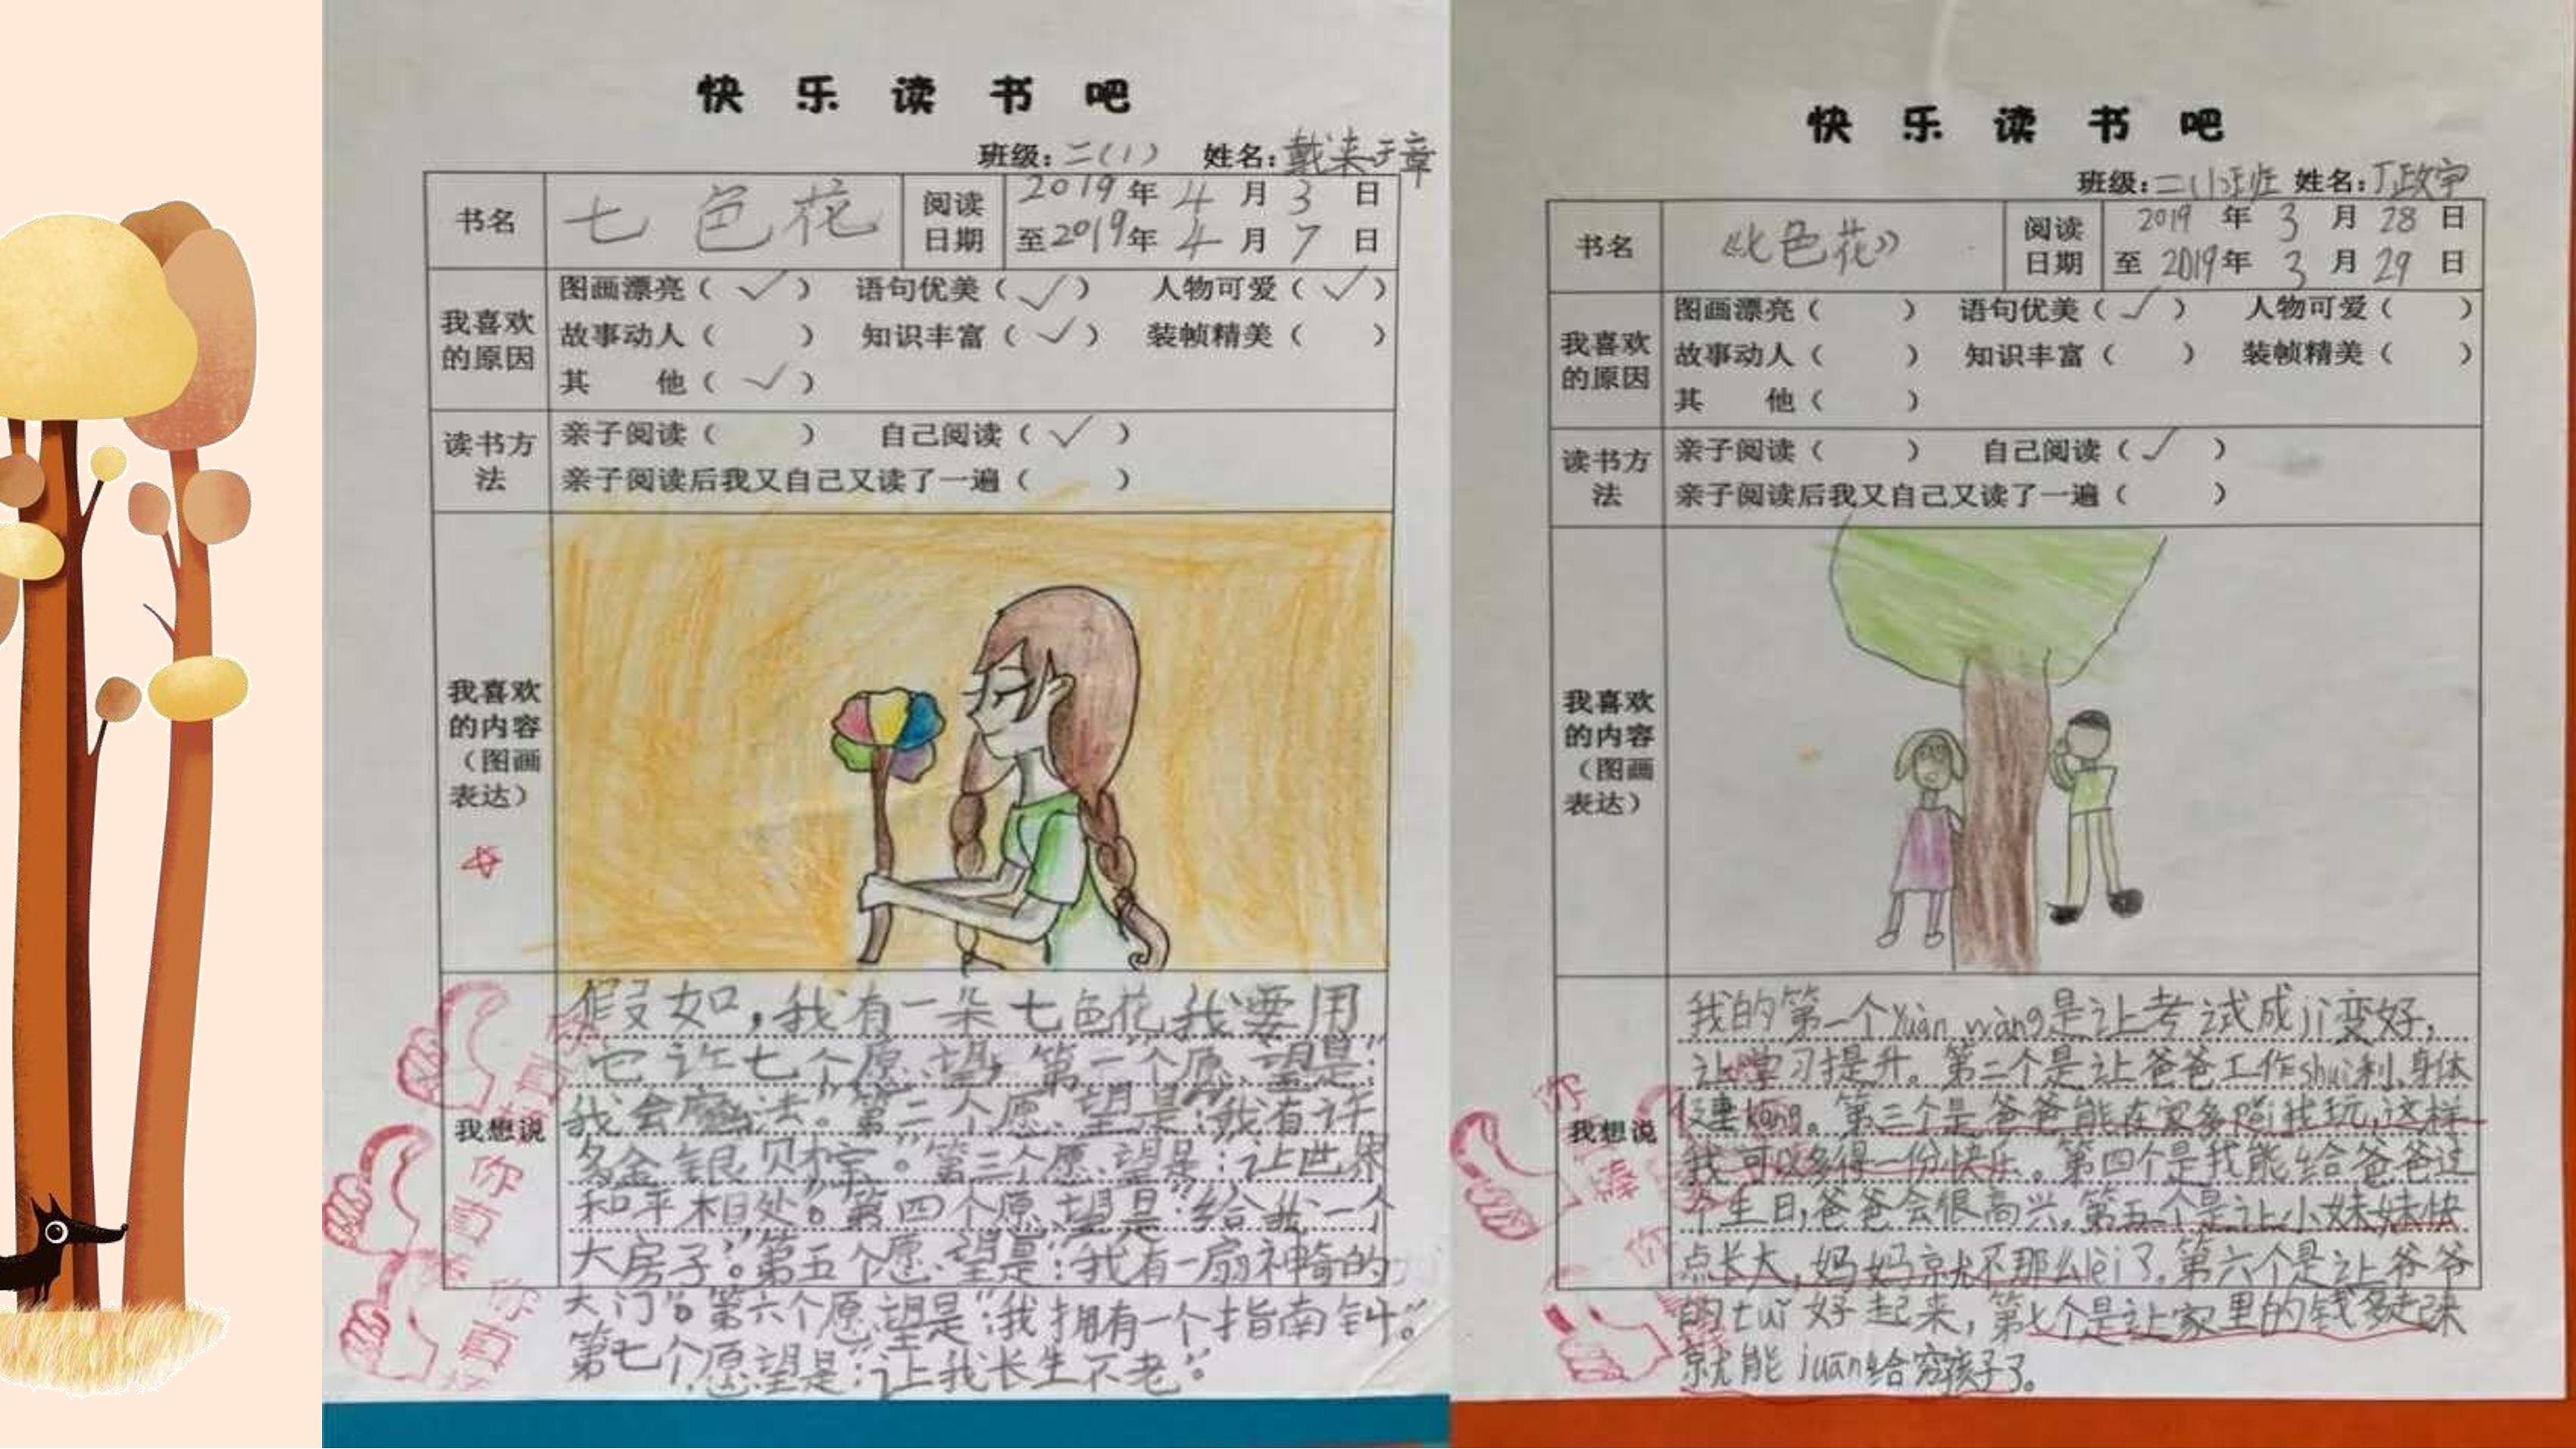 快乐读书吧
班级：二（1） 姓名：戴来于章
书名 七色花 阅读日期 2019年4月3日
至2019年4月7日
我喜欢的原因
图画漂亮（✓） 语句优美（✓） 人物可爱（✓）
故事动人（ ） 知识丰富（✓） 装帧精美（ ）
其 他（✓）
读书方法
亲子阅读（ ） 自己阅读（✓）
亲子阅读后我又自己又读了一遍（ ）
我喜欢的内容（图画表达）
我想说
假如，我有一朵七色花，我要用
它许七个愿望，第一个愿望是：
我会魔法”。第二个愿望是：“我有许
多金银贝宝”。第三个愿望是：“让世界
和平相处”。第四个愿望是“给我一个
大房子”。第五个愿望是：“我有一扇神奇的
大门”。第六个愿望是“我拥有一个指南针”。
第七个愿望是：“让我长生不老”
你真棒
快乐读书吧
班级：二（1）班 姓名：丁政宇
书名 《七色花》 阅读日期 2019年3月28日
至2019年3月29日
我喜欢的原因
图画漂亮（ ） 语句优美（✓） 人物可爱（ ）
故事动人（ ） 知识丰富（ ） 装帧精美（ ）
其 他（ ）
读书方法
亲子阅读（ ） 自己阅读（✓）
亲子阅读后我又自己又读了一遍（ ）
我喜欢的内容（图画表达）
我想说
我的第一个yuàn wàng是让考试成jì变好，
让学习提升。第二个是让爸爸工作shuì利、身体
健kāng。第三个是爸爸能在家多péi我玩，这样
我可以多得一份快乐。第四个是我能给爸爸过
个生日，爸爸会很高兴，第五个是让小妹妹快
点长大，妈妈就不那么lèi了。第六个是让爷爷
的tuǐ好起来，第七个是让家里的钱多起来
就能juān给穷孩子了。
你 棒